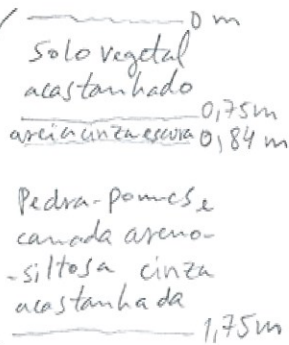 0 m
Solo vegetal
acastanhado
0,75m
areia cinza escura 0,84 m
Pedra-pomes e
camada areno-
-siltosa cinza
acastanhada
1,75m